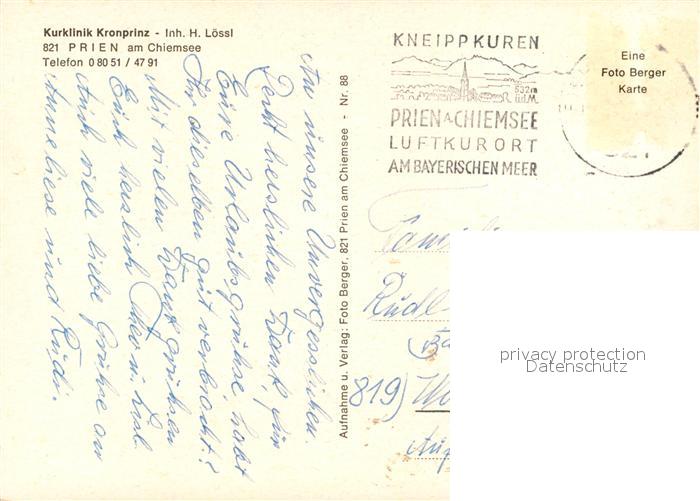 Kurklinik Kronprinz - Inh. H. Lössl
821 PRIEN am Chiemsee
Telefon 0 80 51 / 47 91
An unsere Unvergesslichen.
Recht herzlichen Dank, für
Eure Urlaubsgrüsse, habt
Ihr dieselben gut verbracht?
Mit vielen Dank grüssen
Euch herzlich
Auch viele liebe Grüsse an
Anneliese und Rudi.
Aufnahme u. Verlag: Foto Berger, 821 Prien am Chiemsee - Nr. 88
KNEIPPKUREN
532m
ü.d.M.
PRIEN A. CHIEMSEE
LUFTKURORT
AM BAYERISCHEN MEER
Eine
Foto Berger
Karte
819)
privacy protection
Datenschutz